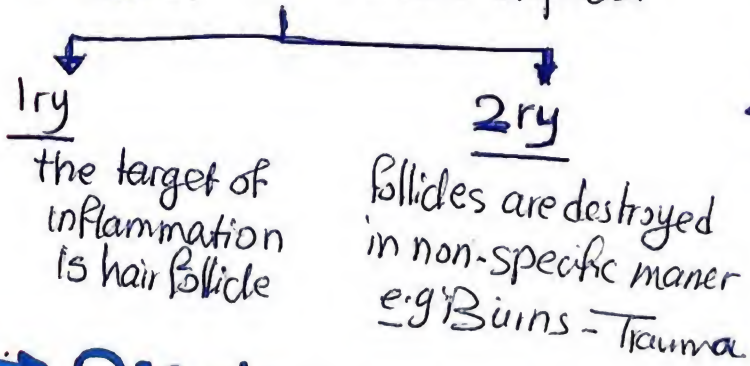 1ry
the target of
inflammation
is hair follicle
2ry
follicles are destroyed
in non-specific maner
e.g Burns - Trauma